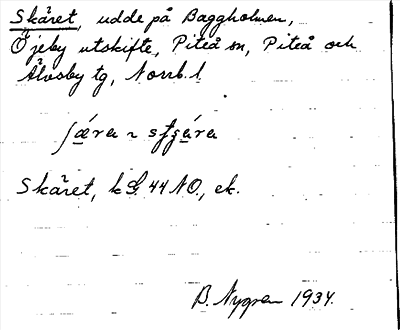 Skäret, udde på Baggholmen,
Öjeby utskifte, Piteå sn, Piteå och
Älvsby tg, Norrb. l.
ʃæ̀ra ~ sʃʒæ̀ra
Skäret, k 44 NO, ek.
B. Nygren 1934.